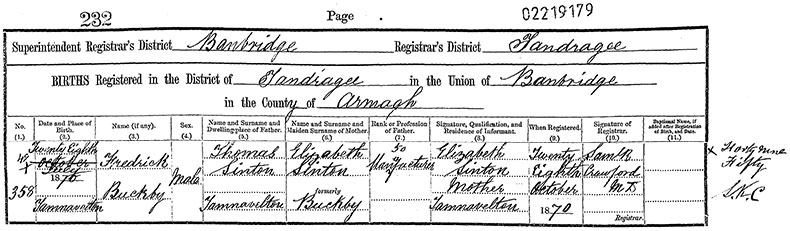 232 Page . 02219179
Superintendent Registrar's District Banbridge Registrar's District Tandragee
BIRTHS Registered in the District of Tandragee in the Union of Banbridge
in the County of Armagh
No. (1.) Date and Place of Birth. (2.) Name (if any). (3.) Sex. (4.) Name and Surname and Dwelling-place of Father. (5.) Name and Surname and Maiden Surname of Mother. (6.) Rank or Profession of Father. (7.) Signature, Qualification, and Residence of Informant. (8.) When Registered. (9.) Signature of Registrar. (10.) Baptismal Name, if added after Registration of Birth, and Date. (11.)
49 Twenty Eighth Thomas Elizabeth 50 Elizabeth Twenty Saml R × Forty nine
× October Fredrick Sinton Sinton Manufacturer Sinton Eighth Crawford Fifty
July
1870 Male formerly Mother October M D
358 Buckby Buckby S.K.C
Tamnavelton Tamnavelton Tamnavelton 1870 Registrar.